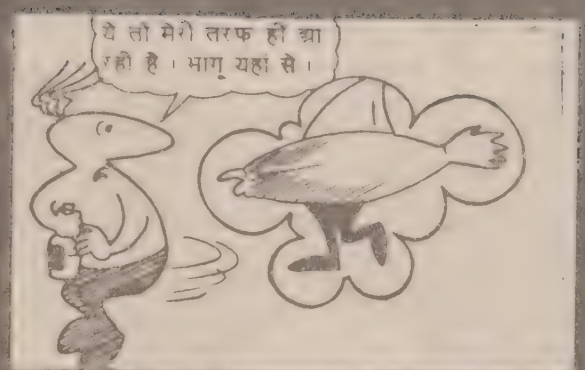 ये तो मेरी तरफ ही आ
रही है । भागू यहां से ।